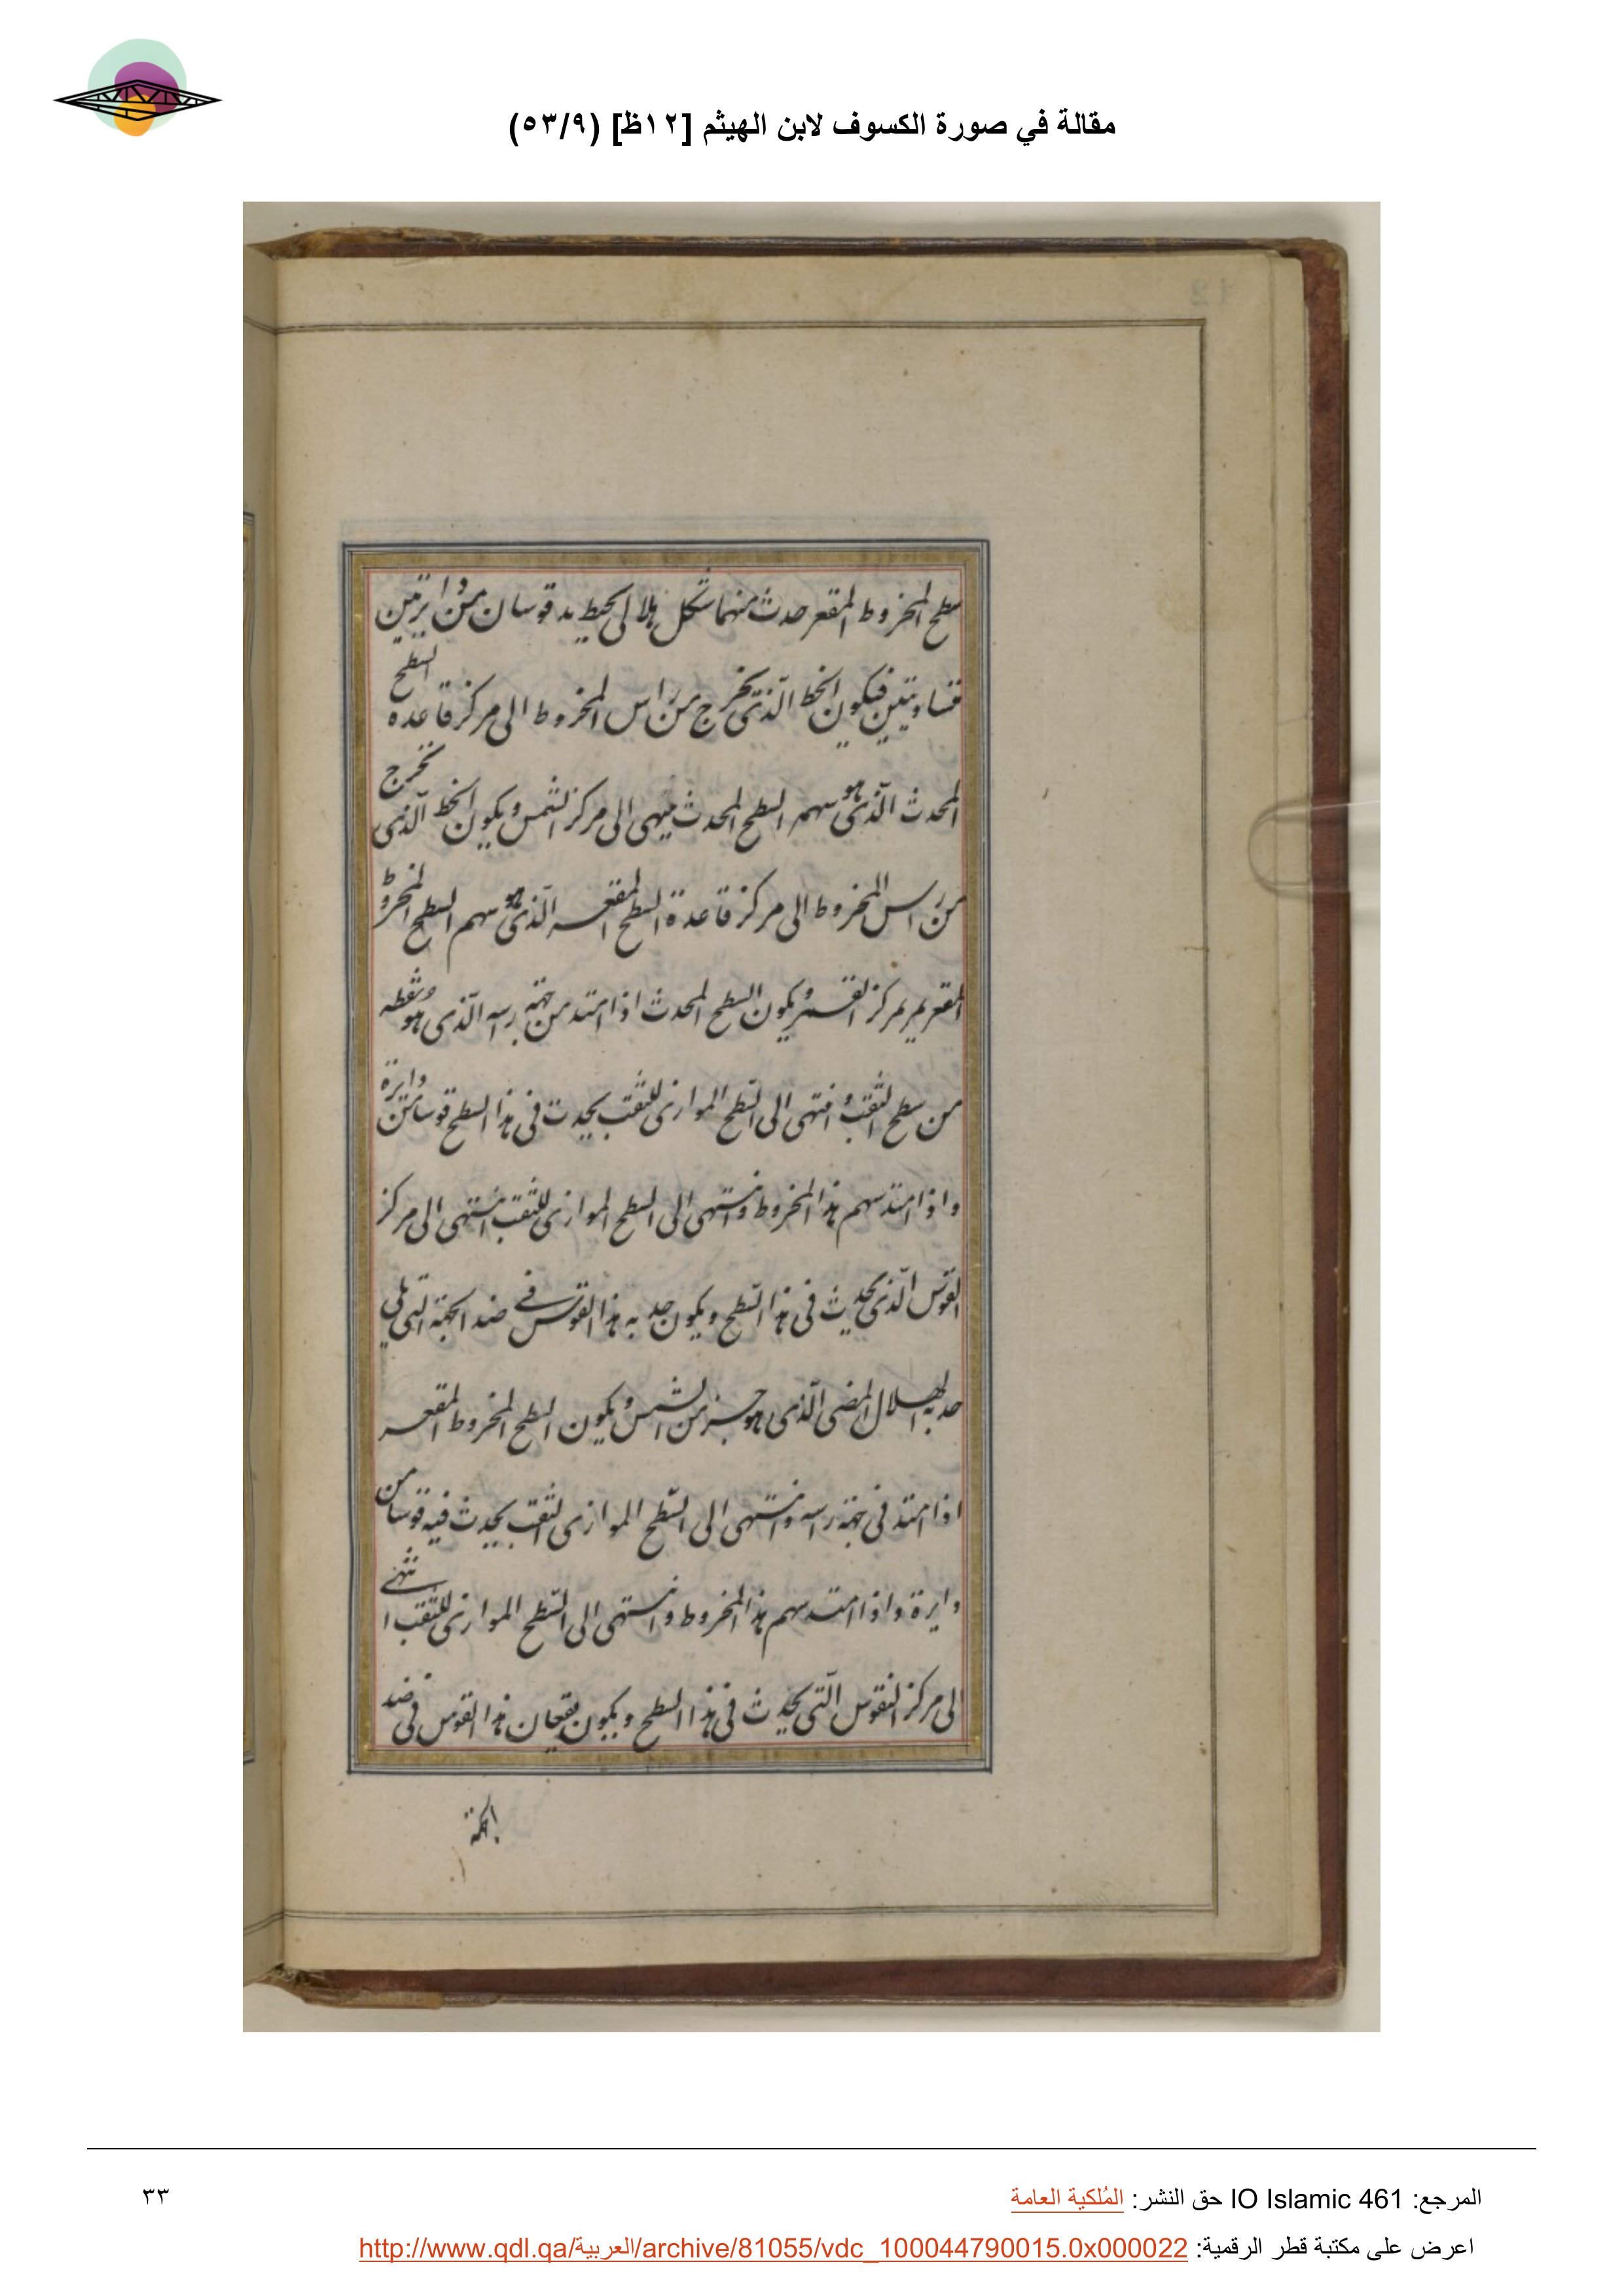 مقالة في صورة الكسوف لابن الهيثم [١٢ظ] (٥٣/٩)
سطح المخروط المقعر حدث منهما شكل هلالى يحيط به قوسان من دايرتين
متساويتين فيكون الخط الذى يخرج من راس المخروط الى مركز قاعده السطح
المحدث الذى هو سهم السطح المحدث ينتهى الى مركز الشمس ويكون الخط الذى يخرج
من راس المخروط الى مركز قاعدة السطح المقعر الذى هو سهم السطح المخروط
المقعر يمر بمركز القمر ويكون السطح المحدث اذا امتد من جهة راسه الذى هو نقطه
من سطح الثقب وانتهى الى السطح الموازى للثقب يحدث فى هذا السطح قوسا من دايرة
واذا امتد سهم هذا المخروط وانتهى الى السطح الموازى للثقب انتهى الى مركز
القوس الذى يحدث فى هذا السطح ويكون حدبه هذا القوس فى ضد الجهة التى تلى
حدبه الهلال المضى الذى هو جزء من الشمس ويكون السطح المخروط المقعر
اذا امتد فى جهة راسه وانتهى الى السطح الموازى الثقب يحدث فيه قوسا من
دايرة واذا امتد سهم هذا المخروط وانتهى الى السطح الموازى للثقب انتهى
الى مركز القوس التى يحدث فى هذا السطح ويكون هذا القوس فى ضد
الجهة
المرجع: IO Islamic 461 حق النشر: المُلكية العامة
٣٣
اعرض على مكتبة قطر الرقمية: http://www.qdl.qa/العربية/archive/81055/vdc_100044790015.0x000022